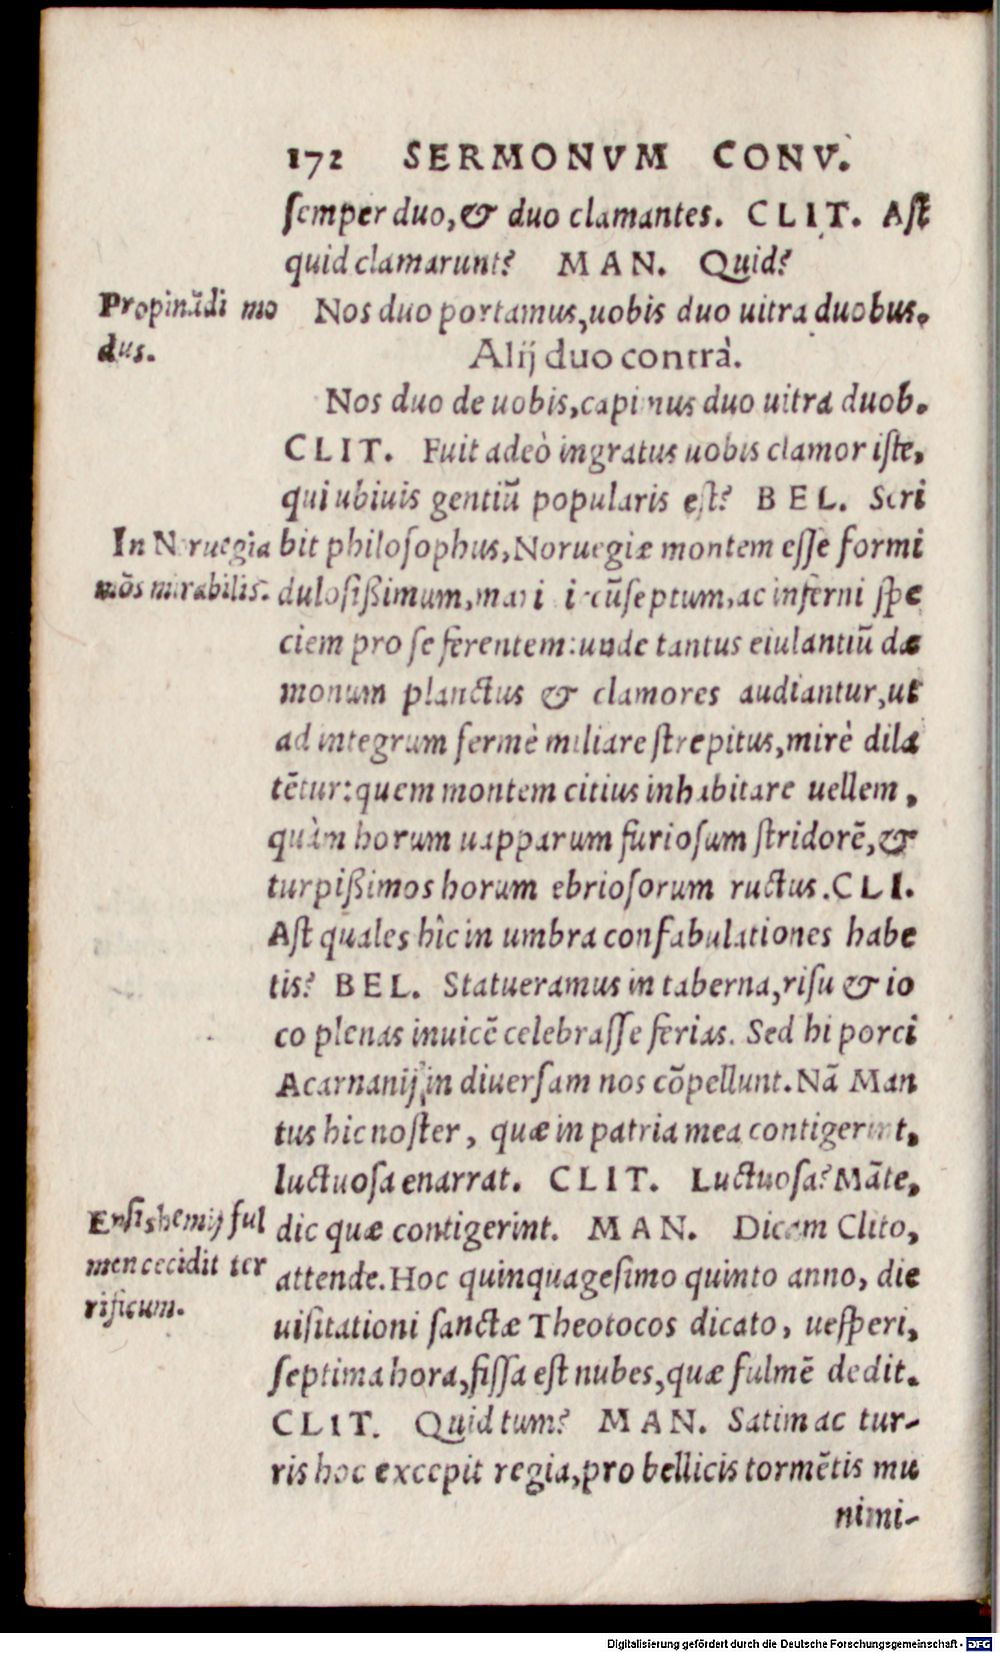 172 SERMONVM CONV.
semper duo, & duo clamantes. CLIT. Ast
quid clamarunt? MAN. Quid?
Propinãdi mo
dus.
Nos duo portamus, uobis duo uitra duobus.
Alij duo contrà.
Nos duo de uobis, capimus duo uitra duob.
CLIT. Fuit adeò ingratus uobis clamor iste,
qui ubiuis gentiũ popularis est? BEL. Scri
In Noruegia
mõs mirabilis.
bit philosophus, Noruegiæ montem esse formi
dulosißimum, mari circũseptum, ac inferni spe
ciem pro se ferentem: unde tantus eiulantiũ dæ
monum planctus & clamores audiantur, ut
ad integrum fermè miliare strepitus, mirè dila
tẽtur: quem montem citius inhabitare uellem,
quàm horum uapparum furiosum stridorẽ, &
turpißimos horum ebriosorum ructus. CLI.
Ast quales hîc in umbra confabulationes habe
tis? BEL. Statueramus in taberna, risu & io
co plenas inuicẽ celebrasse ferias. Sed hi porci
Acarnanij, in diuersam nos cõpellunt. Nã Man
tus hic noster, quæ in patria mea contigerint,
luctuosa enarrat. CLIT. Luctuosa? Mãte,
Ensishemij ful
men cecidit ter
rificum.
dic quæ contigerint. MAN. Dicam Clito,
attende. Hoc quinquagesimo quinto anno, die
uisitationi sanctæ Theotocos dicato, uesperi,
septima hora, fissa est nubes, quæ fulmẽ dedit.
CLIT. Quid tum? MAN. Satim ac tur-
ris hoc excepit regia, pro bellicis tormẽtis mu
nimi-
Digitalisierung gefördert durch die Deutsche Forschungsgemeinschaft - DFG